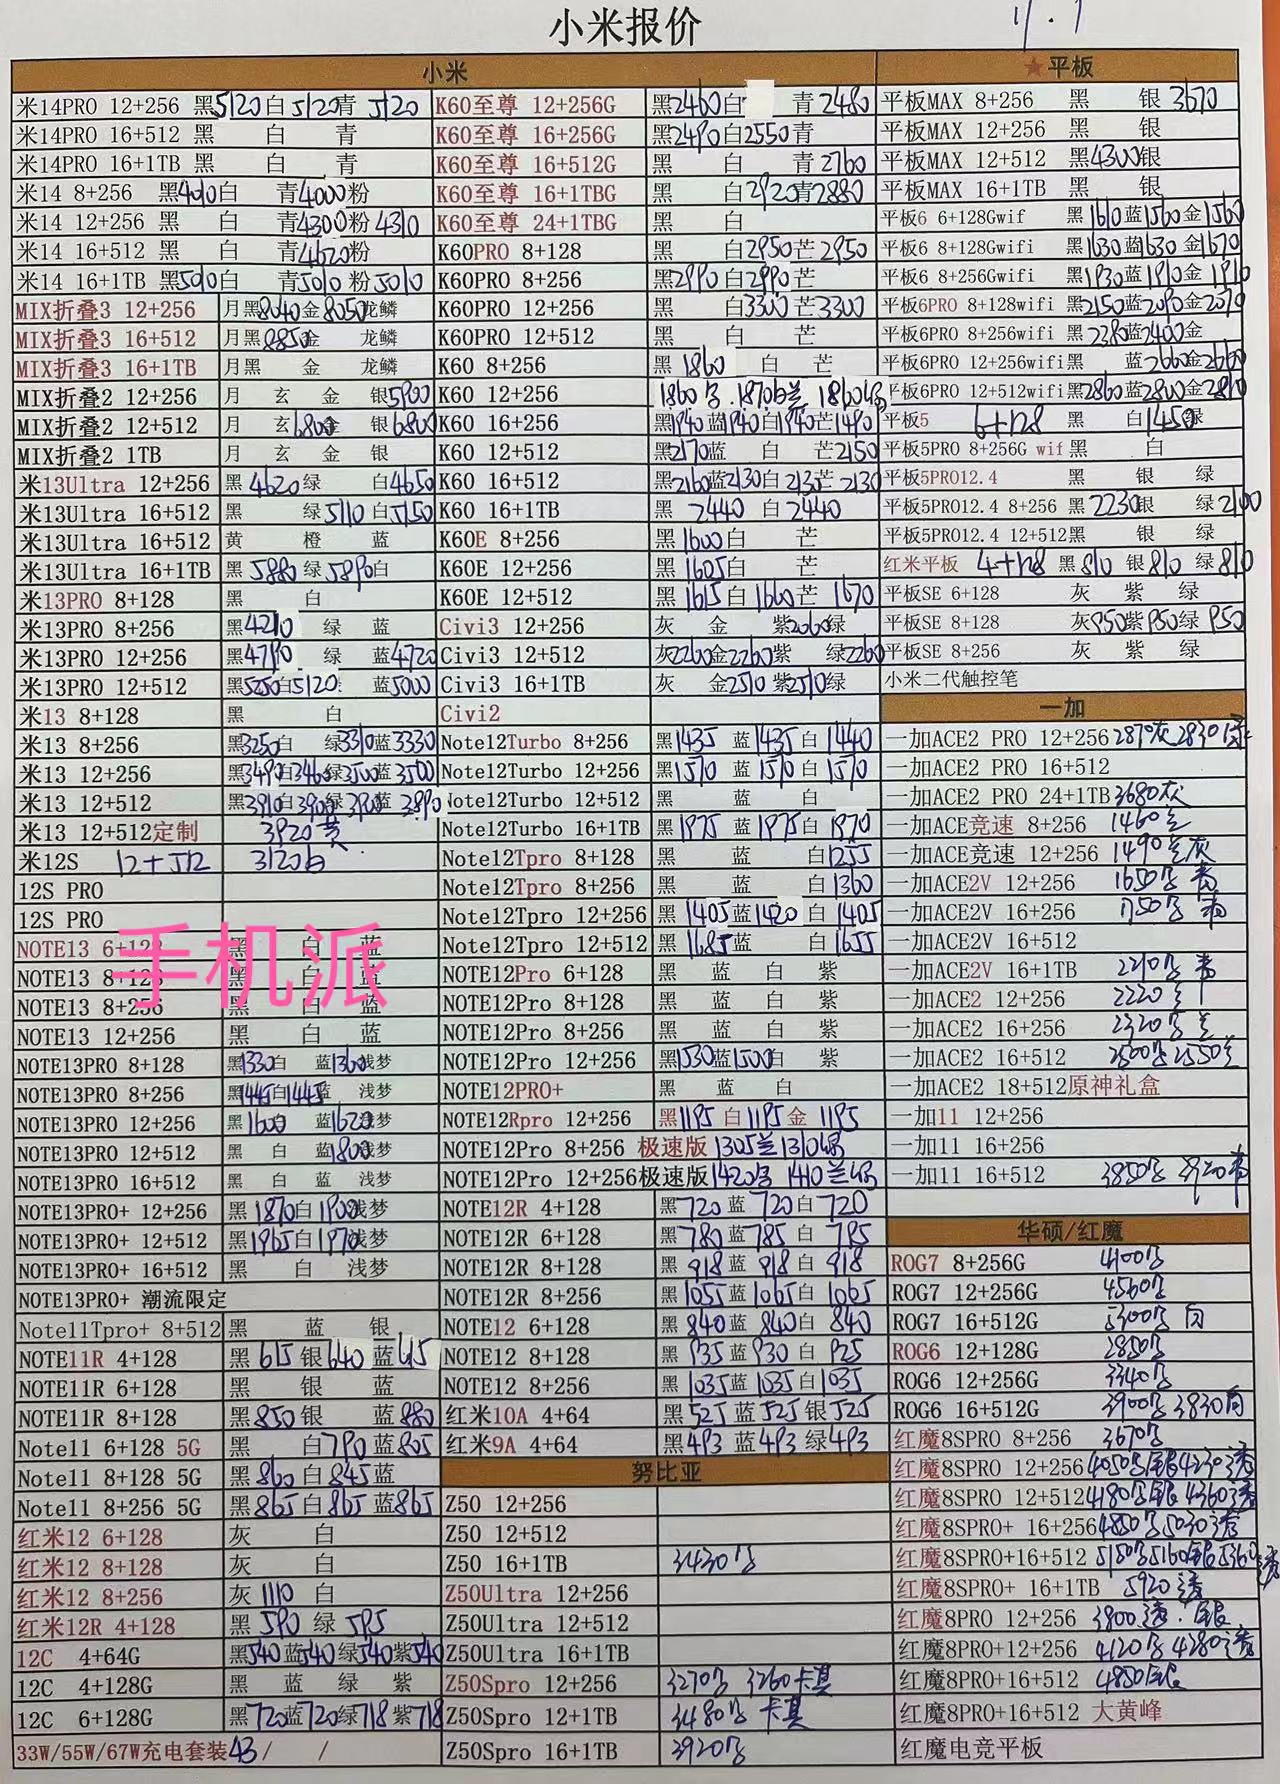 小米报价
小米
米14PRO 12+256 黑5120白5120青 5120
米14PRO 16+512 黑 白 青
米14PRO 16+1TB 黑 白 青
米14 8+256 黑4010白 青4000粉
米14 12+256 黑 白 青4300粉4310
米14 16+512 黑 白 青4620粉
米14 16+1TB 黑5010白 青5010粉5010
MIX折叠3 12+256 月黑8040金8050龙鳞
MIX折叠3 16+512 月黑8850金 龙鳞
MIX折叠3 16+1TB 月黑 金 龙鳞
MIX折叠2 12+256 月 玄 金 银5900
MIX折叠2 12+512 月 玄6800金 银6800
MIX折叠2 1TB 月 玄 金 银
米13Ultra 12+256 黑 4620绿 白4650
米13Ultra 16+512 黑 绿5110白5150
米13Ultra 16+512 黄 橙 蓝
米13Ultra 16+1TB 黑 5880绿 5890白
米13PRO 8+128 黑 白
米13PRO 8+256 黑4210 绿 蓝
米13PRO 12+256 黑4790 绿 蓝4720
米13PRO 12+512 黑5250白5120 蓝5000
米13 8+128 黑 白
米13 8+256 黑3250白 绿3310蓝3330
米13 12+256 黑3490白3460绿3500蓝3500
米13 12+512 黑3910白3900绿3900蓝 3890
米13 12+512定制 3920黄
米12S 12+512 3120白
12S PRO
12S PRO
NOTE13 6+128 黑 白 蓝
NOTE13 8+128 黑 白 蓝
手机派
NOTE13 8+256 黑 白 蓝
NOTE13 12+256 黑 白 蓝
NOTE13PRO 8+128 黑1330白 蓝1360浅梦
NOTE13PRO 8+256 黑1445白1445蓝 浅梦
NOTE13PRO 12+256 黑1600白 蓝1620浅梦
NOTE13PRO 12+512 黑 白 蓝1800浅梦
NOTE13PRO 16+512 黑 白 蓝 浅梦
NOTE13PRO+ 12+256 黑 1870白1900浅梦
NOTE13PRO+ 12+512 黑1965白1970浅梦
NOTE13PRO+ 16+512 黑 白 浅梦
NOTE13PRO+ 潮流限定
Note11Tpro+ 8+512 黑 蓝 银
NOTE11R 4+128 黑 615 银640 蓝615
NOTE11R 6+128 黑 银 蓝
NOTE11R 8+128 黑850银 蓝880
Note11 6+128 5G 黑 白790蓝805
Note11 8+128 5G 黑860白845蓝
Note11 8+256 5G 黑865白865蓝865
红米12 6+128 灰 白
红米12 8+128 灰 白
红米12 8+256 灰 1110 白
红米12R 4+128 黑 590 绿 595
12C 4+64G 黑540蓝540绿540紫540
12C 4+128G 黑 蓝 绿 紫
12C 6+128G 黑720蓝720绿718紫718
33W/55W/67W充电套装43/ /
K60至尊 12+256G 黑2460白 青2480
K60至尊 16+256G 黑2490白2550青
K60至尊 16+512G 黑 白 青2760
K60至尊 16+1TBG 黑 白2920青2880
K60至尊 24+1TBG 黑 白
K60PRO 8+128 黑 白2950芒2950
K60PRO 8+256 黑2990白2990芒
K60PRO 12+256 黑 白3300芒3300
K60PRO 12+512 黑 白 芒
K60 8+256 黑 1860 白 芒
K60 12+256
K60 16+256 黑1940蓝1940白1940芒1490
K60 16+256 黑2170蓝 白 芒2150
K60 16+512 黑2160蓝2130白2130芒2130
K60 16+1TB 黑 2440 白 2440
K60E 8+256 黑1600白 芒
K60E 12+256 黑1605白 芒
K60E 12+512 黑1615白1660芒 1670
Civi3 12+256 灰 金 紫2060绿
Civi3 12+512 灰2260金2260紫 绿2260
Civi3 16+1TB 灰 金2510紫2510绿
Civi2
Note12Turbo 8+256 黑1435 蓝1435白1440
Note12Turbo 12+256 黑1570 蓝1570白1570
Note12Turbo 12+512 黑 蓝 白
Note12Turbo 16+1TB 黑1975 蓝1975白1970
Note12Tpro 8+128 黑 蓝 白1255
Note12Tpro 8+256 黑 蓝 白1360
Note12Tpro 12+256 黑1405蓝1420 白1405
Note12Tpro 12+512 黑1685蓝 白1655
NOTE12Pro 6+128 黑 蓝 白 紫
NOTE12Pro 8+128 黑 蓝 白 紫
NOTE12Pro 8+256 黑 蓝 白 紫
NOTE12Pro 12+256 黑1530蓝1500白 紫
NOTE12PRO+ 黑 蓝 白
NOTE12Rpro 12+256 黑1195白1195金 1195
NOTE12Pro 8+256 极速版 1305兰1310
NOTE12Pro 12+256极速版 1420 1410兰
NOTE12R 4+128 黑720蓝720白720
NOTE12R 6+128 黑780蓝785白 785
NOTE12R 8+128 黑918蓝918白918
NOTE12R 8+256 黑1055蓝1065白1065
NOTE12 6+128 黑840蓝840白840
NOTE12 8+128 黑935蓝930白925
NOTE12 8+256 黑1035蓝1035白1035
红米10A 4+64 黑525蓝525银525
红米9A 4+64 黑493蓝493绿493
努比亚
Z50 12+256
Z50 12+512
Z50 16+1TB 3430
Z50Ultra 12+256
Z50Ultra 12+512
Z50Ultra 16+1TB
Z50Spro 12+256 3270 3260卡其
Z50Spro 12+1TB 3480 卡其
Z50Spro 16+1TB 3920
★平板
平板MAX 8+256 黑 银3670
平板MAX 12+256 黑 银
平板MAX 12+512 黑4300银
平板MAX 16+1TB 黑 银
平板6 6+128Gwif 黑1610蓝1560金1560
平板6 8+128Gwifi 黑1630蓝1630金1670
平板6 8+256Gwifi 黑1930蓝1910金1910
平板6PRO 8+128wifi 黑2150蓝2090金2090
平板6PRO 8+256wifi 黑2380蓝2400金
平板6PRO 12+256wifi黑 蓝2660金2660
平板6PRO 12+512wifi黑2860蓝2800金2810
平板5 6+128 黑 白1450绿
平板5PRO 8+256G wif 黑 白
平板5PRO12.4 黑 银 绿
平板5PRO12.4 8+256 黑2230银 绿2100
平板5PRO12.4 12+512黑 银 绿
红米平板 4+128 黑810 银810 绿810
平板SE 6+128 灰 紫 绿
平板SE 8+128 灰950紫950绿950
平板SE 8+256 灰 紫 绿
小米二代触控笔
一加
一加ACE2 PRO 12+256 2870灰2830
一加ACE2 PRO 16+512
一加ACE2 PRO 24+1TB3680灰
一加ACE竞速 8+256 1460
一加ACE竞速 12+256 1490 灰
一加ACE2V 12+256 1650 青
一加ACE2V 16+256 1750 青
一加ACE2V 16+512
一加ACE2V 16+1TB 2210 青
一加ACE2 12+256 2220
一加ACE2 16+256 2320
一加ACE2 16+512 2500 2550
一加ACE2 18+512原神礼盒
一加11 12+256
一加11 16+256
一加11 16+512 3850 3920青
华硕/红魔
ROG7 8+256G 4100
ROG7 12+256G 4560
ROG7 16+512G 5300 白
ROG6 12+128G 2850
ROG6 12+256G 3340
ROG6 16+512G 3900 3830白
红魔8SPRO 8+256 3670
红魔8SPRO 12+256 4050 银4230透
红魔8SPRO 12+512 4180 银4360透
红魔8SPRO+ 16+256 4850 5030透
红魔8SPRO+16+512 5150 5160银5360透
红魔8SPRO+ 16+1TB 5920透
红魔8PRO 12+256 3800透.银
红魔8PRO+12+256 4120 4280透
红魔8PRO+16+512 4850银
红魔8PRO+16+512 大黄峰
红魔电竞平板